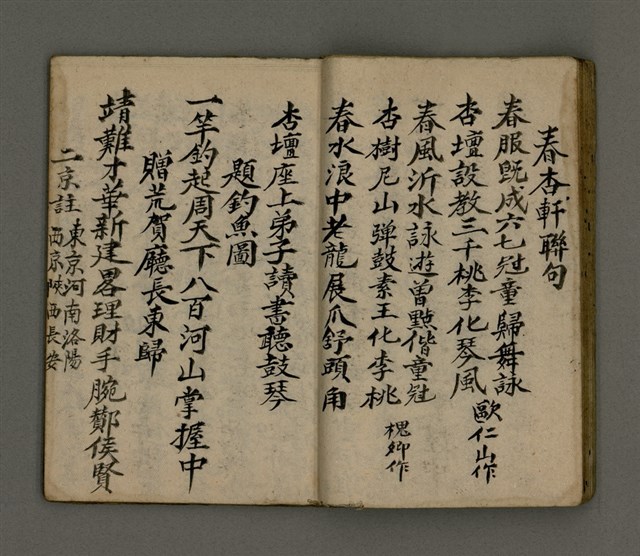 春杏軒聯句
春服既成六七冠童歸舞詠
杏壇設教三千桃李化琴風
歐仁山作
春風沂水詠遊曾點偕童冠
杏樹尼山弹鼓素王化李桃
槐卿作
春水浪中老龍展爪舒頭角
杏壇座上弟子讀書聽鼓琴
題釣魚圖
一竿釣起周天下八百河山掌握中
贈荒賀廳長東歸
靖難才華新建畧理財手腕鄭侯賢
二京註
東京河南洛陽
西京陝西長安